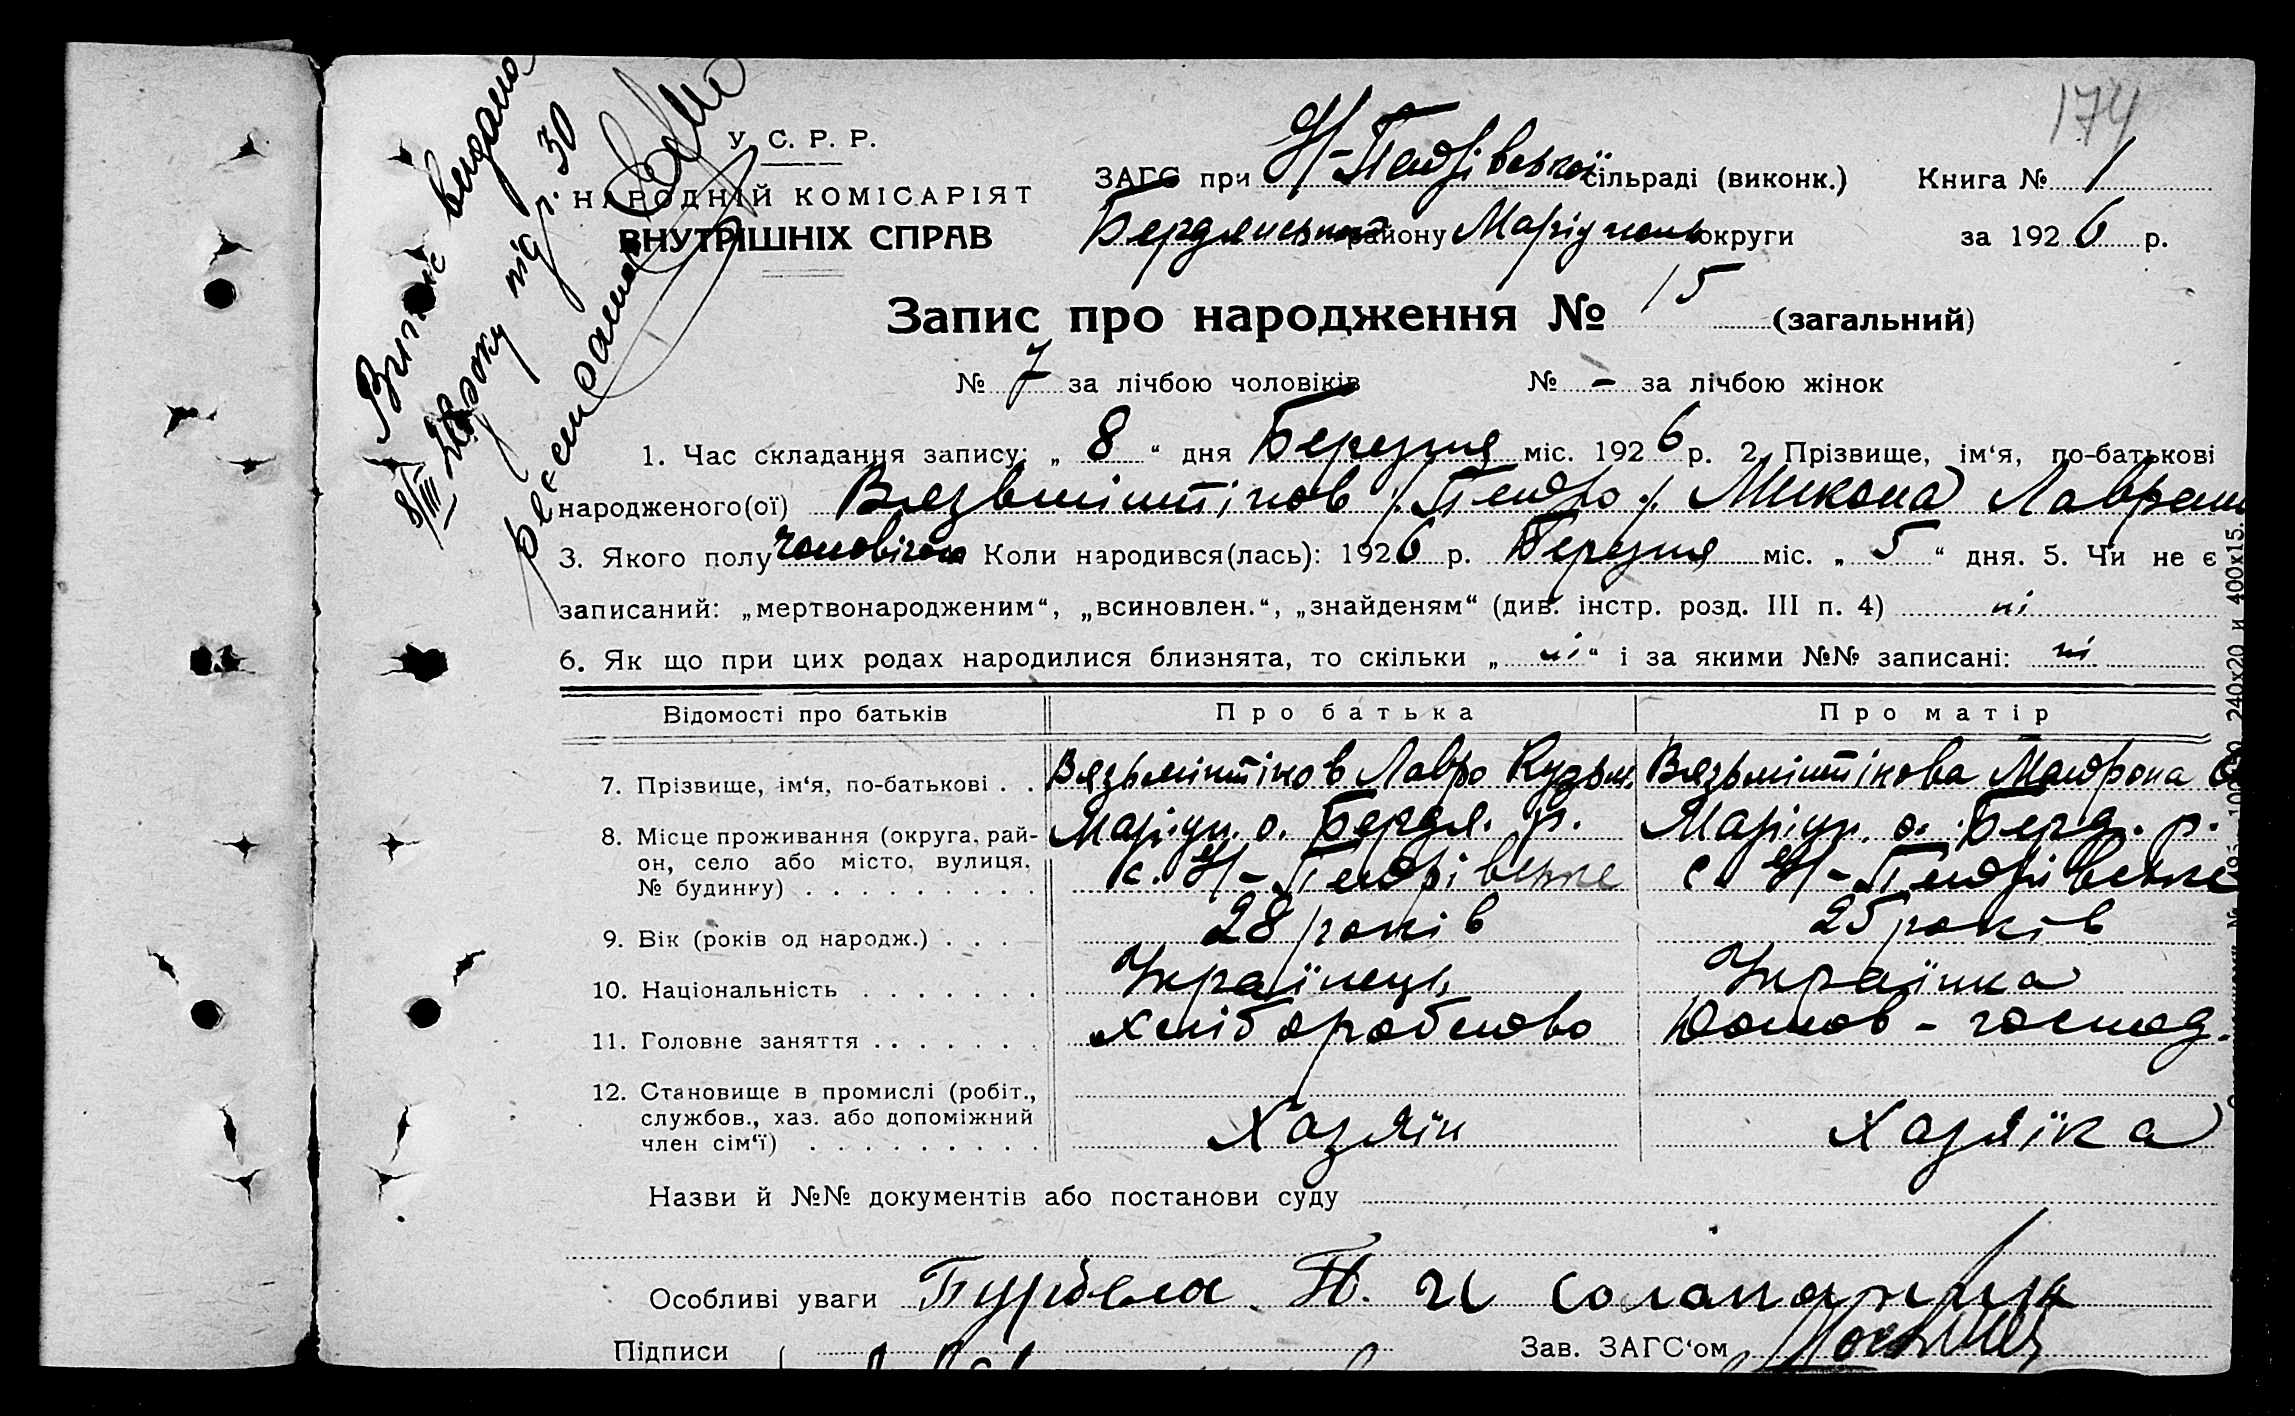 174
У. С. Р. Р.
НАРОДНІЙ КОМІСАРІЯТ
ВНУТРІШНІХ СПРАВ
ЗАГС при Н-Петрівської сільраді (виконк.) Книга № 1
Бердянського району Маріупольс округи за 1926 р.
Випис видано
8/III 26 року під р. 30
Запис про народження № 15 (загальний)
№ 7 за лічбою чоловіків № – за лічбою жінок
1. Час складання запису: „ 8 “ дня Березня міс. 1926 р. 2. Прізвище, ім‘я, по-батькові
народженого(ої) Микола
3. Якого полу чоловічого Коли народився(лась): 1926 р. Березня міс. „ 5 “ дня. 5. Чи не є
записаний: „мертвонародженим“, „всиновлен.“, „знайденям“ (див. інстр. розд. III п. 4) ні
6. Як що при цих родах народилися близнята, то скільки „ ні “ і за якими №№ записані: ні
Відомості про батьків Про батька Про матір
7. Прізвище, ім‘я, по-батькові . . Вязьмінтінов Лавро Кузьм. Вязьмінтінова Мотрона
8. Місце проживання (округа, рай-
он, село або місто, вулиця,
№ будинку) . . . . . . . . . Маріуп. о. Бердя. р. Маріуп. о. Берд. р.
с. Н-Петрівське с. Н-Петрівське
9. Вік (років од народж.) . . . 28 років 25 років
10. Національність . . . . . . . Українець Українка
11. Головне заняття . . . . . . . хліборобство Домов-господ.
12. Становище в промислі (робіт.,
службов., хаз. або допоміжний
член сім‘ї) . . . . . . . . . Хазяїн Хазяїка
Назви й №№ документів або постанови суду
Особливі уваги
Підписи Зав. ЗАГС‘ом
240х20 и 400х15.